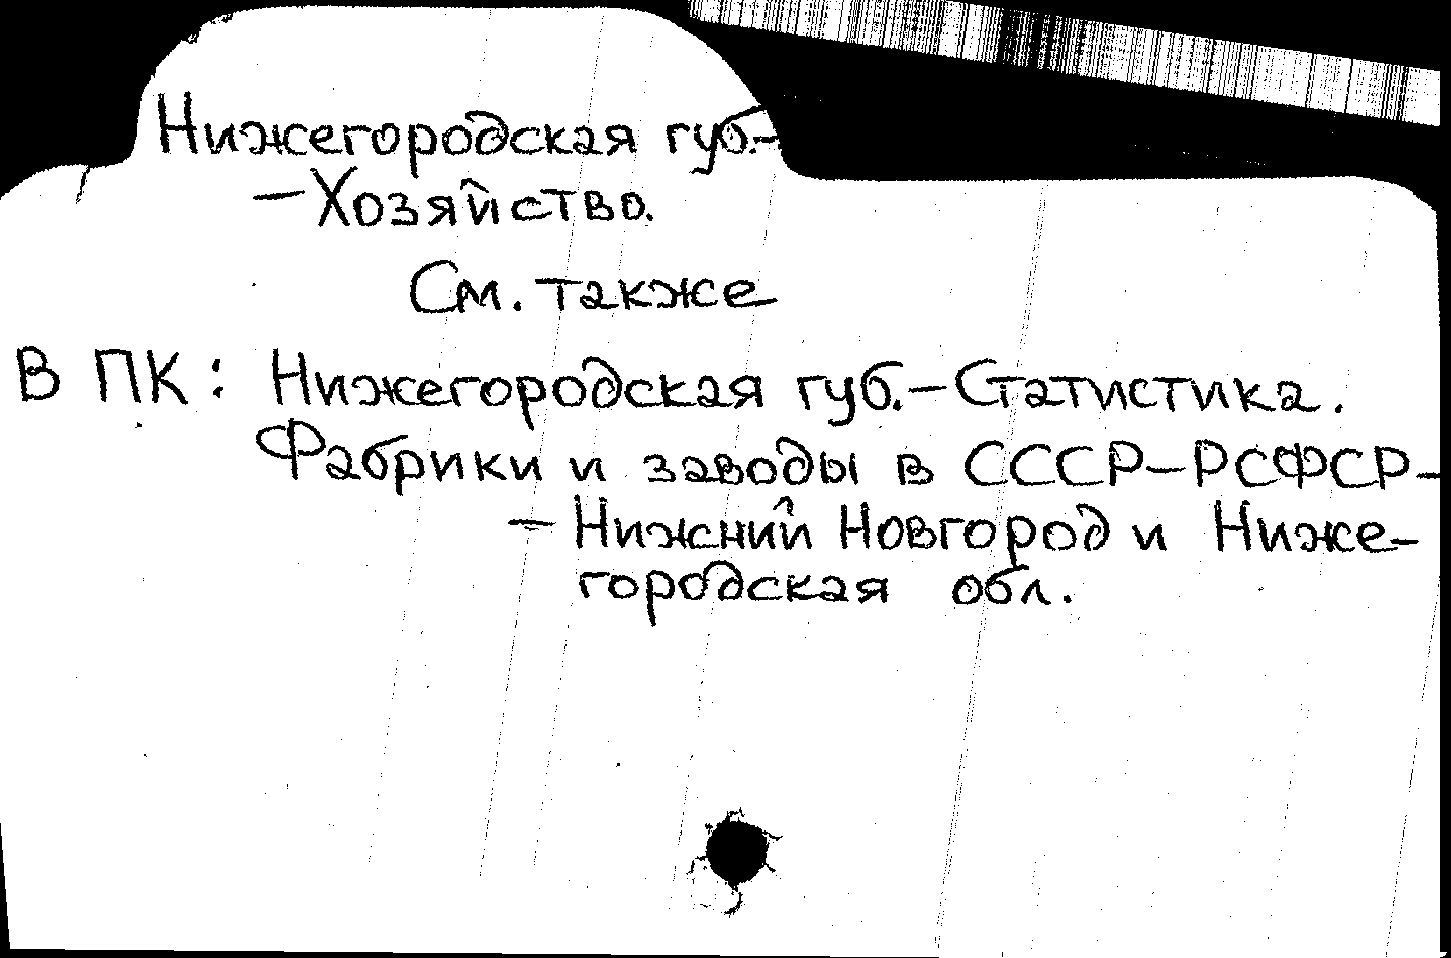 Нижегородская губ.-
- Хозяйство.
См. также
В ПК: Нижегородская губ.-Статистика.
Фабрики и заводы в СССР-РСФСР-
- Нижний Новгород и Ниже-
городская обл.